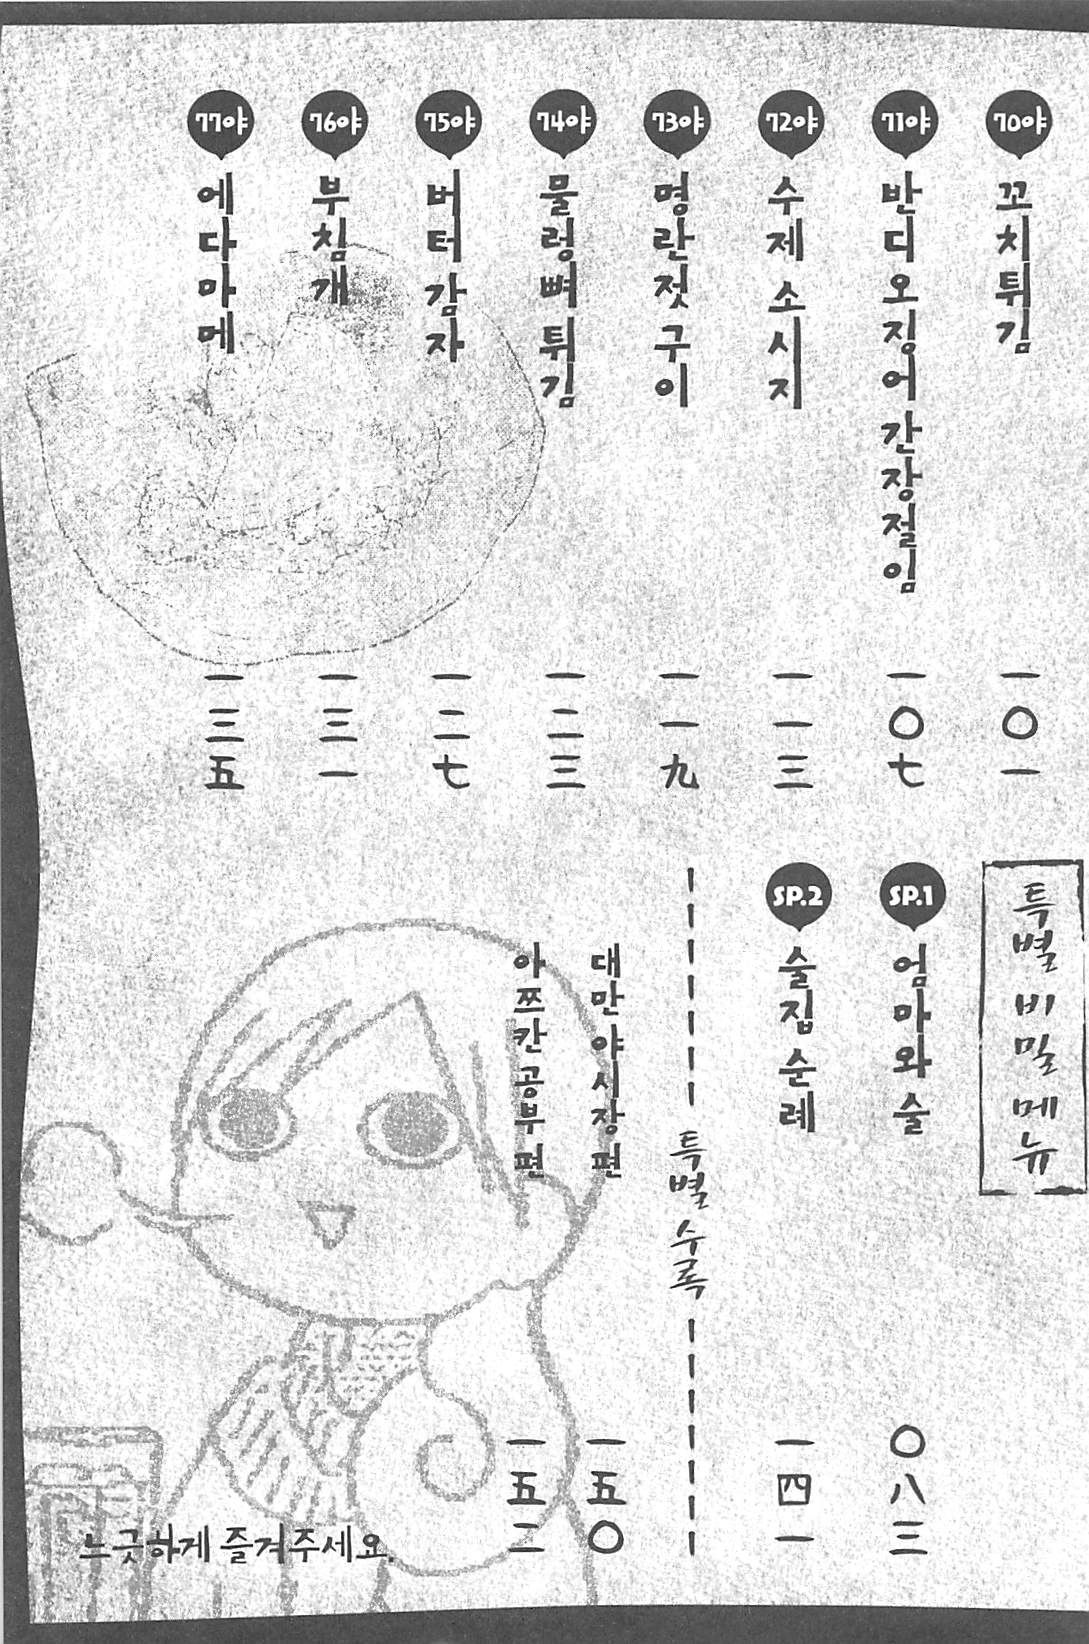 70야 꼬치튀김 一〇一
71야 반디오징어 간장절임 一〇七
72야 수제 소시지 一一三
73야 명란젓 구이 一一九
74야 물렁뼈 튀김 一二三
75야 버터감자 一二七
76야 부침개 一三一
77야 에다마메 一三五
특별 비밀 메뉴
SP.1 엄마와 술 〇八三
SP.2 술집 순례 一四一
특별 수록
대만 야시장 편 一五〇
아쯔칸 공부 편 一五二
느긋하게 즐겨주세요.